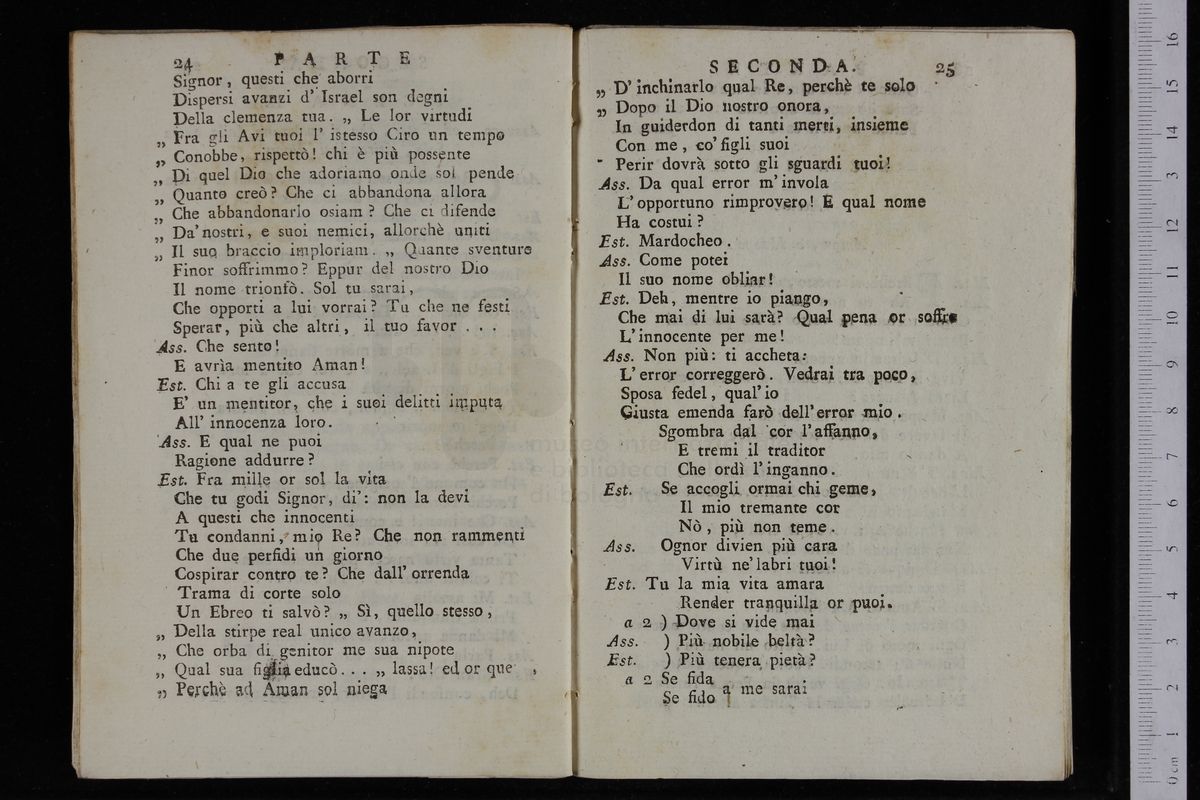 24 PARTE
Signor, questi che aborri
Dispersi avanzi d' Israel son degni
Della clemenza tua. „ Le lor virtudi
„ Fra gli Avi tuoi l' istesso Ciro un tempo
„ Conobbe, rispettò! chi è più possente
„ Di quel Dio che adoriamo onde sol pende
„ Quanto creò? Che ci abbandona allora
„ Che abbandonarlo osiam? Che ci difende
„ Da' nostri, e suoi nemici, allorchè uniti
„ Il suo braccio imploriam. „ Quante sventure
Finor soffrimmo? Eppur del nostro Dio
Il nome trionfò. Sol tu sarai,
Che opporti a lui vorrai? Tu che ne festi
Sperar, più che altri, il tuo favor . . .
Ass. Che sento!
E avrìa mentito Aman!
Est. Chi a te gli accusa
E' un mentitor, che i suoi delitti imputa
All' innocenza loro.
Ass. E qual ne puoi
Ragione addurre?
Est. Fra mille or sol la vita
Che tu godi Signor, di': non la devi
A questi che innocenti
Tu condanni, mio Re? Che non rammenti
Che due perfidi un giorno
Cospirar contro te? Che dall' orrenda
Trama di corte solo
Un Ebreo ti salvò? „ Sì, quello stesso,
„ Della stirpe real unico avanzo,
„ Che orba di genitor me sua nipote
„ Qual sua figlia educò. . . „ lassa! ed or que ,
„ Perchè ad Aman sol niega
SECONDA. 25
„ D' inchinarlo qual Re, perchè te solo
„ Dopo il Dio nostro onora,
In guiderdon di tanti merti, insieme
Con me, co' figli suoi
Perir dovrà sotto gli sguardi tuoi!
Ass. Da qual error m' invola
L' opportuno rimprovero! E qual nome
Ha costui?
Est. Mardocheo.
Ass. Come potei
Il suo nome obliar!
Est. Deh, mentre io piango,
Che mai di lui sarà? Qual pena or soffre
L' innocente per me!
Ass. Non più: ti accheta:
L' error correggerò. Vedrai tra poco,
Sposa fedel, qual' io
Giusta emenda farò dell' error mio.
Sgombra dal cor l' affanno,
E tremi il traditor
Che ordì l' inganno.
Est. Se accogli ormai chi geme,
Il mio tremante cor
Nò, più non teme.
Ass. Ognor divien più cara
Virtù ne' labri tuoi!
Est. Tu la mia vita amara
Render tranquilla or puoi.
a 2 ) Dove si vide mai
Ass. ) Più nobile beltà?
Est. ) Più tenera pietà?
a 2 Se fida
a me sarai
Se fido